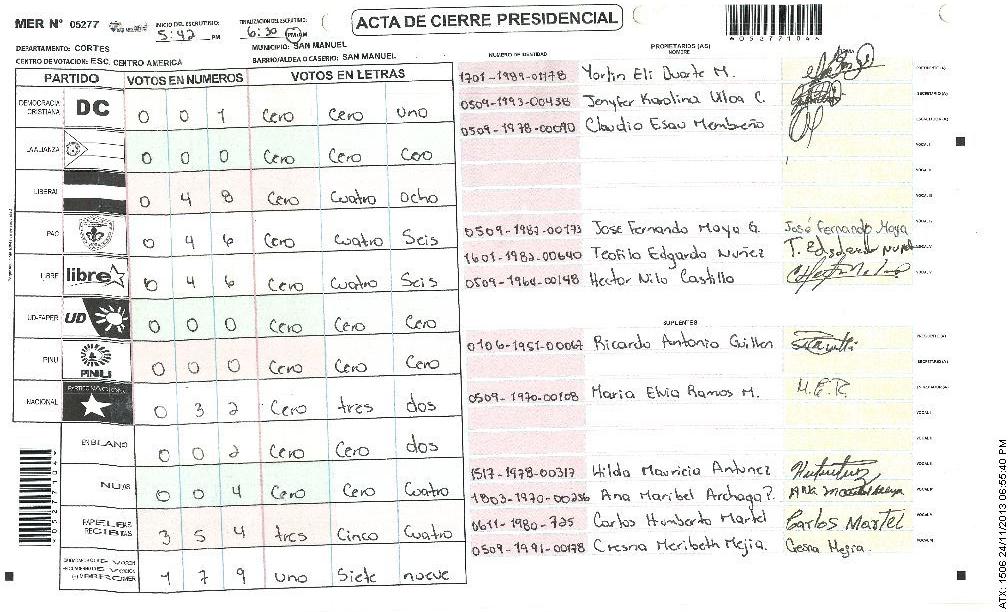 ACTA DE CIERRE PRESIDENCIAL
MER N° 05277
INICIO DEL ESCRUTINIO: 5:42 PM
FINALIZACION DEL ESCRUTINIO: 6:30 PM
DEPARTAMENTO: CORTES
MUNICIPIO: SAN MANUEL
CENTRO DE VOTACION: ESC. CENTRO AMERICA
BARRIO/ALDEA O CASERIO: SAN MANUEL
PARTIDO VOTOS EN NUMEROS VOTOS EN LETRAS
DEMOCRACIA CRISTIANA DC 0 0 1 Cero Cero uno
LA ALIANZA 0 0 0 Cero Cero Cero
LIBERAL 0 4 8 Cero Cuatro ocho
PAC 0 4 6 Cero Cuatro Seis
LIBRE libre 0 4 6 Cero Cuatro Seis
UD-FAPER UD 0 0 0 Cero Cero Cero
PINU PINU 0 0 0 Cero Cero Cero
NACIONAL 0 3 2 Cero tres dos
EN BLANCO 0 0 2 Cero Cero dos
NULOS 0 0 4 Cero Cero Cuatro
3 5 4 tres Cinco Cuatro
1 7 9 uno Siete nueve
NUMERO DE IDENTIDAD
PROPIETARIOS (AS)
NOMBRE
1701-1989-01178 Yorlin Eli Duarte M.
0509-1993-00438 Jenyfer Karolina Ulloa C.
0509-1978-00090 Claudio Esau Membreño
0509-1987-00173 Jose Fernando Moya G. José Fernando Moya
1601-1982-00640 Teofilo Edgardo Nuñez
0509-1964-00148 Hector Nilo Castillo
SUPLENTES
0106-1951-00067 Ricardo Antonio Guillen
0509-1970-00108 Maria Elvia Ramos M. M.E.R.
1517-1978-00317 Hilda Mauricia Antunez
1803-1970-00256 Ana Maribel Archaga P.
0611-1980-725 Carlos Humberto Martel Carlos Martel
0509-1991-00178 Cresna Meribeth Mejia.
ATX: 1506 24/11/2013 06:55:40 PM